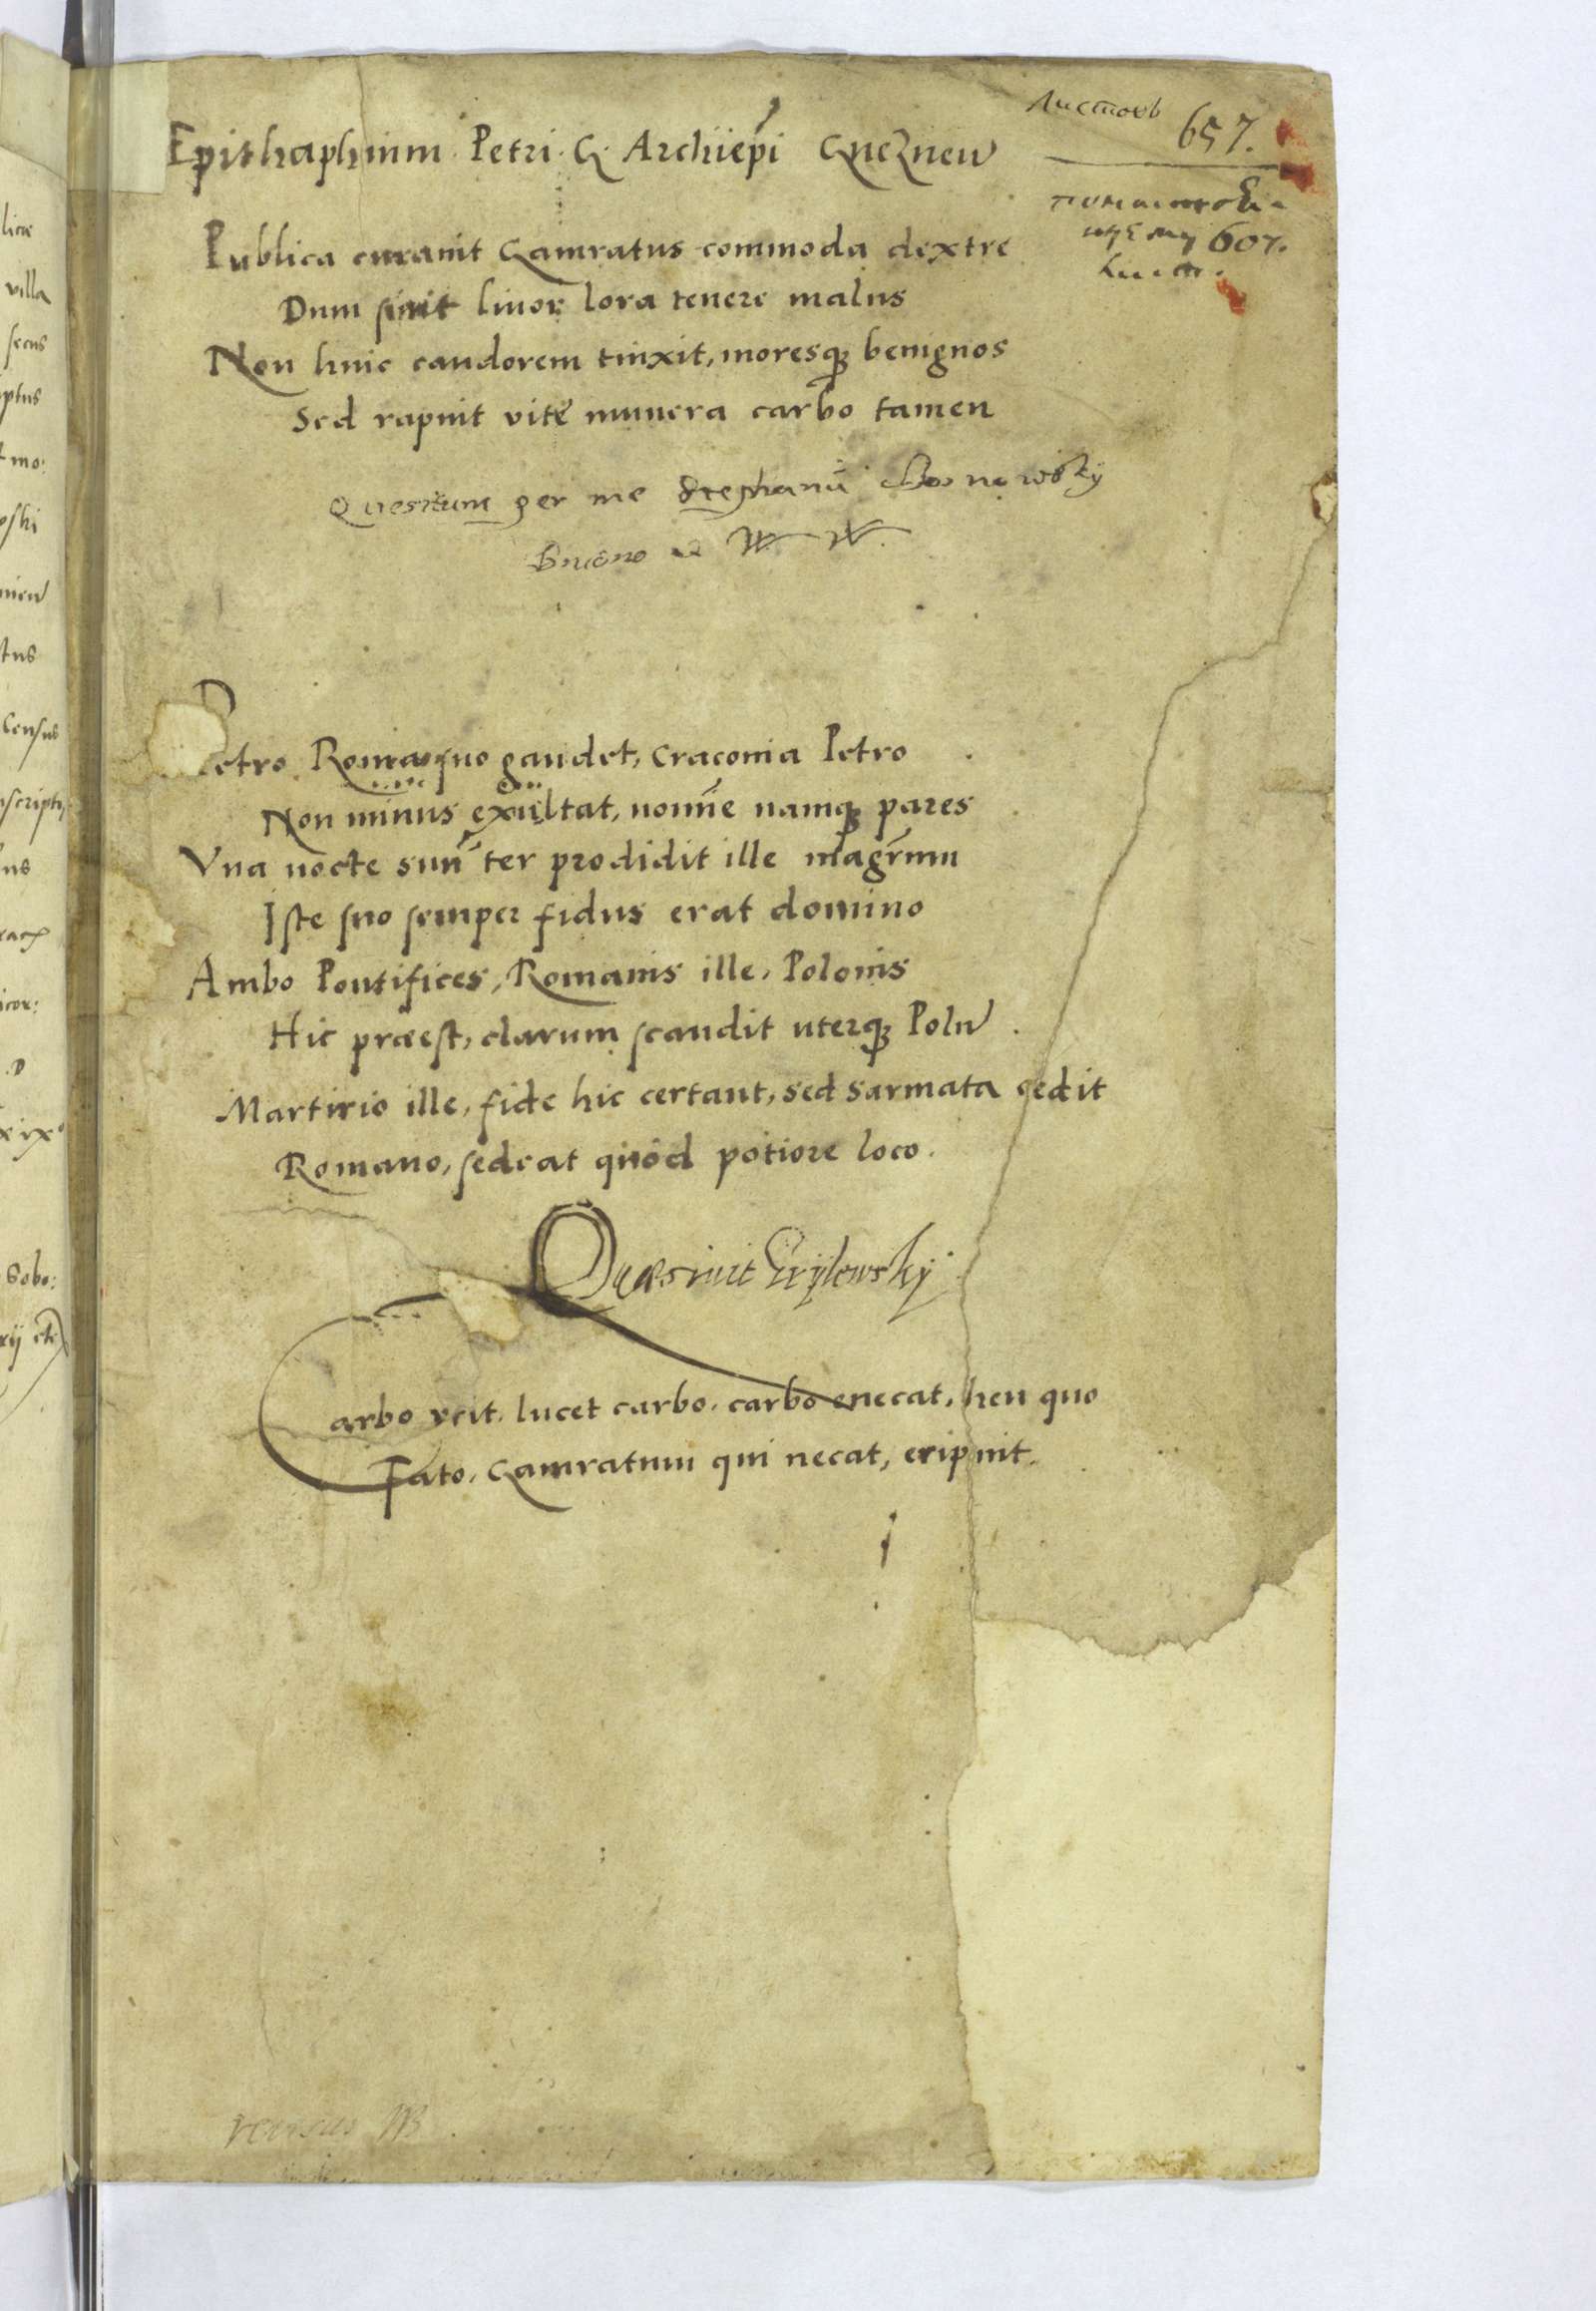 Листовъ 657.
Epithaphium Petri G. Archiep̃i Gnezneñ
Publica curauit Gamratus commoda dextre
607.
Dum sinit liuor lora tenere malus
Non huic candorem tinxit, moresq̃ benignos
Sed rapuit vite munera carbo tamen
Quesitum per me Stephanū
Petro Roma suo gaudet, Craconia Petro
Non minus exultat, nomīe namq̃ pares
Vna nocte suū ter prodidit ille magr̃um
Iste suo semper fidus erat domino
Ambo Pontifices, Romanis ille, Polonis
Hic præest, clarum scandit uterq̃ Polū.
Martirio ille, fide hic certant, sed sarmata cedit
Romano, sedeat quod potiore loco.
Quæsiuit
Carbo vrit. lucet carbo. carbo enecat, heu quo
Fato, Gamratum qui necat, eripuit.
versus
licæ
villa
secus
ptus
mo:
tus
Census
Sobo: